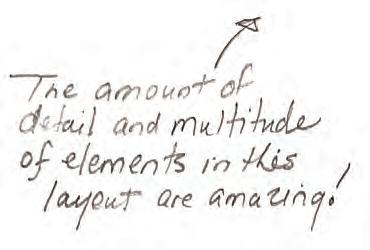 The amount of
detail and multitude
of elements in this
layout are amazing!